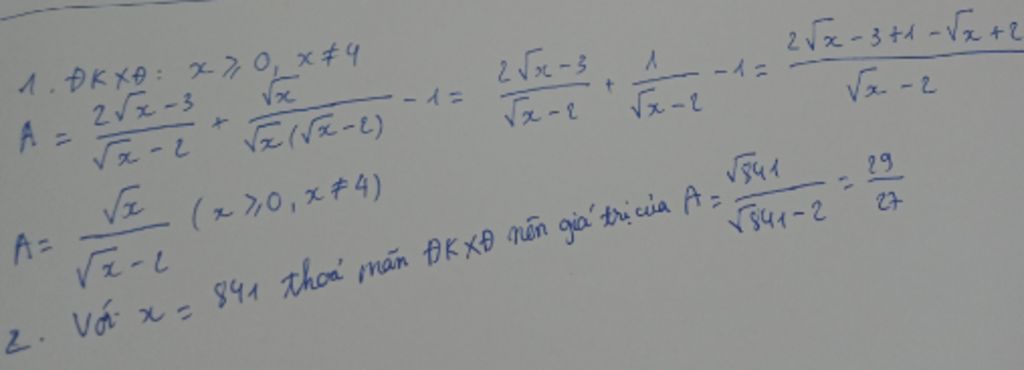 1. ĐKXĐ: x ⩾ 0, x ≠ 4
A = (2√x - 3)/(√x - 2) + √x/(√x(√x - 2)) - 1 = (2√x - 3)/(√x - 2) + 1/(√x - 2) - 1 = (2√x - 3 + 1 - √x + 2)/(√x - 2)
A = √x/(√x - 2) (x ⩾ 0, x ≠ 4)
2. Với x = 841 thoả mãn ĐKXĐ nên giá trị của A = √841/(√841 - 2) = 29/27